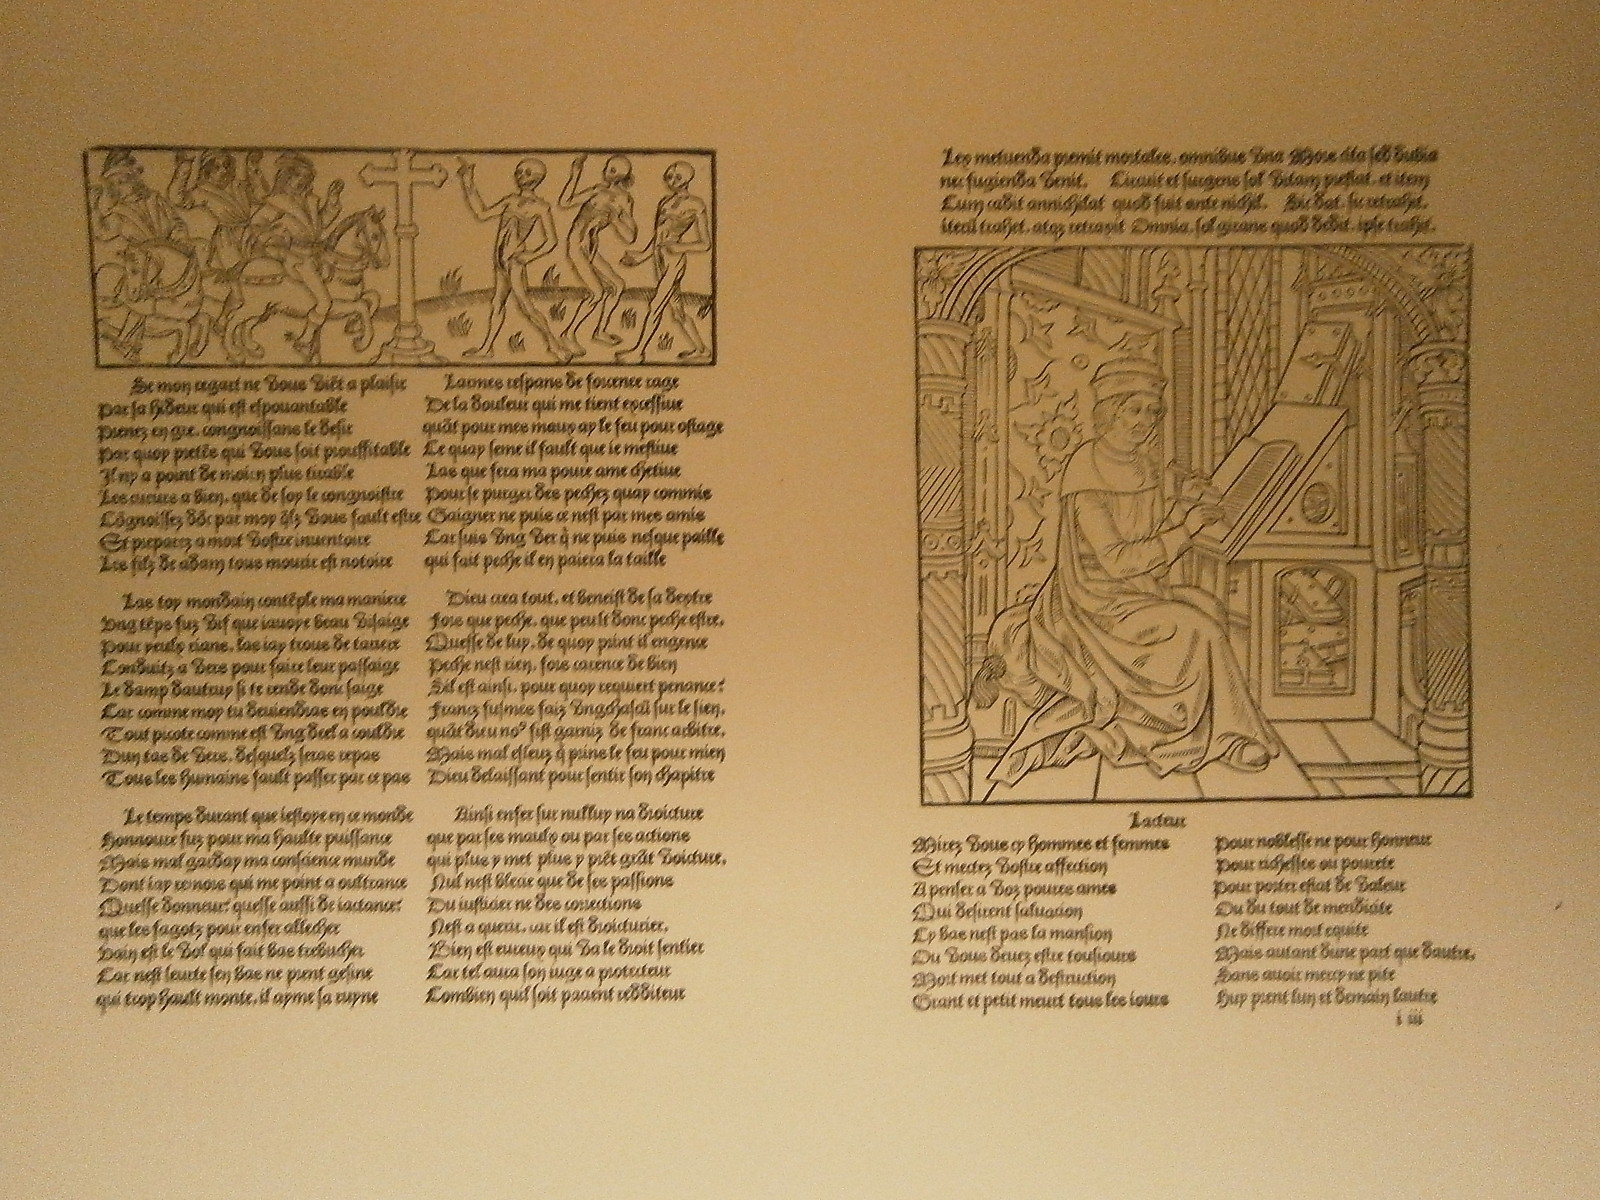 Se mon regart ne vous viēt a plaisir
Par sa hideur qui est espouantable
Prenez en gre, congnoissans le desir
Par quoy pretēs qui vous soit prouffitable
Il ny a point de moien plus tirable
Les cueurs a bien, que de soy le congnoistre
Cōgnoissez dōc par moy q̄lz vous fault estre
Et preparez a mort vostre inuentoire
Les filz de adam tous mourir est notoire
Las toy mondain contēple ma maniere
Vng tēps fuz vif que iauoye beau visaige
Pour yeulx rians, las iay trous de tariere
Conduitz a vers pour faire leur passaige
Le damp dautruy si te rende donc saige
Car comme moy tu deuiendras en pouldre
Tout picote comme est vng deel a couldre
Dun tas de vers, desquelz seras repas
Tous les humains fault passer par ce pas
Le temps durant que iestoye en ce monde
Honnoure fuz pour ma haulte puissance
Mais mal garday ma conscience munde
Dont iay remors qui me point a oultrance
Quesse donneur: quesse aussi de iactance:
que les fagotz pour enfer allecher
vain est le vol qui fait bas trebucher
Car nest seurte sen bas ne prent gesine
qui trop hault monte, il ayme sa ruyne
Larmes respans de sourence rage
De la douleur qui me tient excessiue
quāt pour mes maux ay le feu pour ostage
Ce quay seme il fault que ie mestiue
Las que fera ma poure ame chetiue
Pour se purger des pechez quay commis
Gaigner ne puis ce nest par mes amis
Car suis vng ver q̄ ne puis nesque paille
qui fait peche il en paiera la taille
Dieu crea tout, et beneist de sa dextre
Fors que peche, que peult donc peche estre,
Quesse de luy, de quoy prent il engence
Peche nest rien, fors carence de bien
Sil est ainsi, pour quoy requiert penance:
Francz fusmes faiz vngchascū sur le sien,
quāt dieu no⁹ fist garniz de franc arbitre,
Mais mal esleuz q̄ prins le feu pour mien
Dieu delaissant pour sentir son chapitre
Ainsi enfer sur nulluy na droicture
que par ses maulx ou par ses actions
qui plus y met plus y prēt grāt voicture,
Nul nest blece que de ses passions
Du iusticier ne des corrections
Nest a querir, car il est droicturier,
Bien est eureux qui va le droit sentier
Car tel aura son iuge a protecteur
Combien quil soit parent rediteur
Lex metuenda premit mortales, omnibus vna Mors cita sed dubia
nec fugienda venit. Viuit et surgens sol vitam prestat, et item
Cum cadit annichilat quod fuit ante nichil. Sic dat, sic retrahet,
iteral trahet, atqz retraxit Omnia, sol girans quod dedit, ipse trahit.
Lacteur
Mirez vous cy hommes et femmes
Et mectez vostre affection
A penser a voz poures ames
Qui desirent saluacion
Cy bas nest pas la mansion
Ou vous deuez estre tousiours
Mort met tout a destruction
Grant et petit meurt tous les iours
Pour noblesse ne pour honneur
Pour richesses ou pourete
Pour porter estat de valeur
Ou du tout de mendicite
Ne differe mort equite
Mais autant dune part que dautre,
Sans auoir mercy ne pite
Huy prent lun et demain lautre
i iii